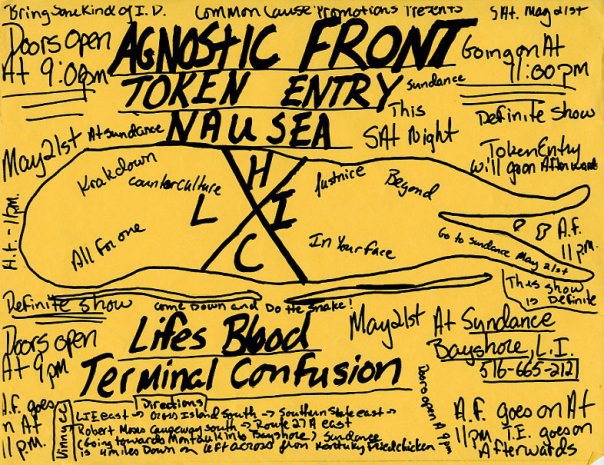 Bring Some Kind of I.D.
Common Cause Promotions Presents
SAt. May 21st
Doors open
At 9:00pm
AGNOSTIC FRONT
Going on At
11:00 pm
TOKEN ENTRY
Sundance
NAUSEA
This
SAt Night
Definite show
Token Entry
will go on Afterward
May 21st At Sundance
Krakdown
counterculture
Justnice
Beyond
L
H
I
C
All For one
In Your Face
A.F. - 11pm.
A.F.
11pm.
Go to Sundance May 21st
This show
is Definite
Definite show
come Down and Do the Snake!
Doors open
At 9pm
Lifes Blood
Terminal Confusion
May 21st At Sundance
Bayshore, L.I.
516-665-2121
Doors open At 9pm
A.F. goes
on At
11p.m.
Vinny
Directions
LIE east → Cross Island South → Southern State east →
Robert Moses Causeway South → Route 27A east
(Going towards Montauk into Bayshore) Sundance
is 4 miles Down on left across from Kentucky Fried chicken
A.F. goes on At
11pm T.E. goes on
Afterwards